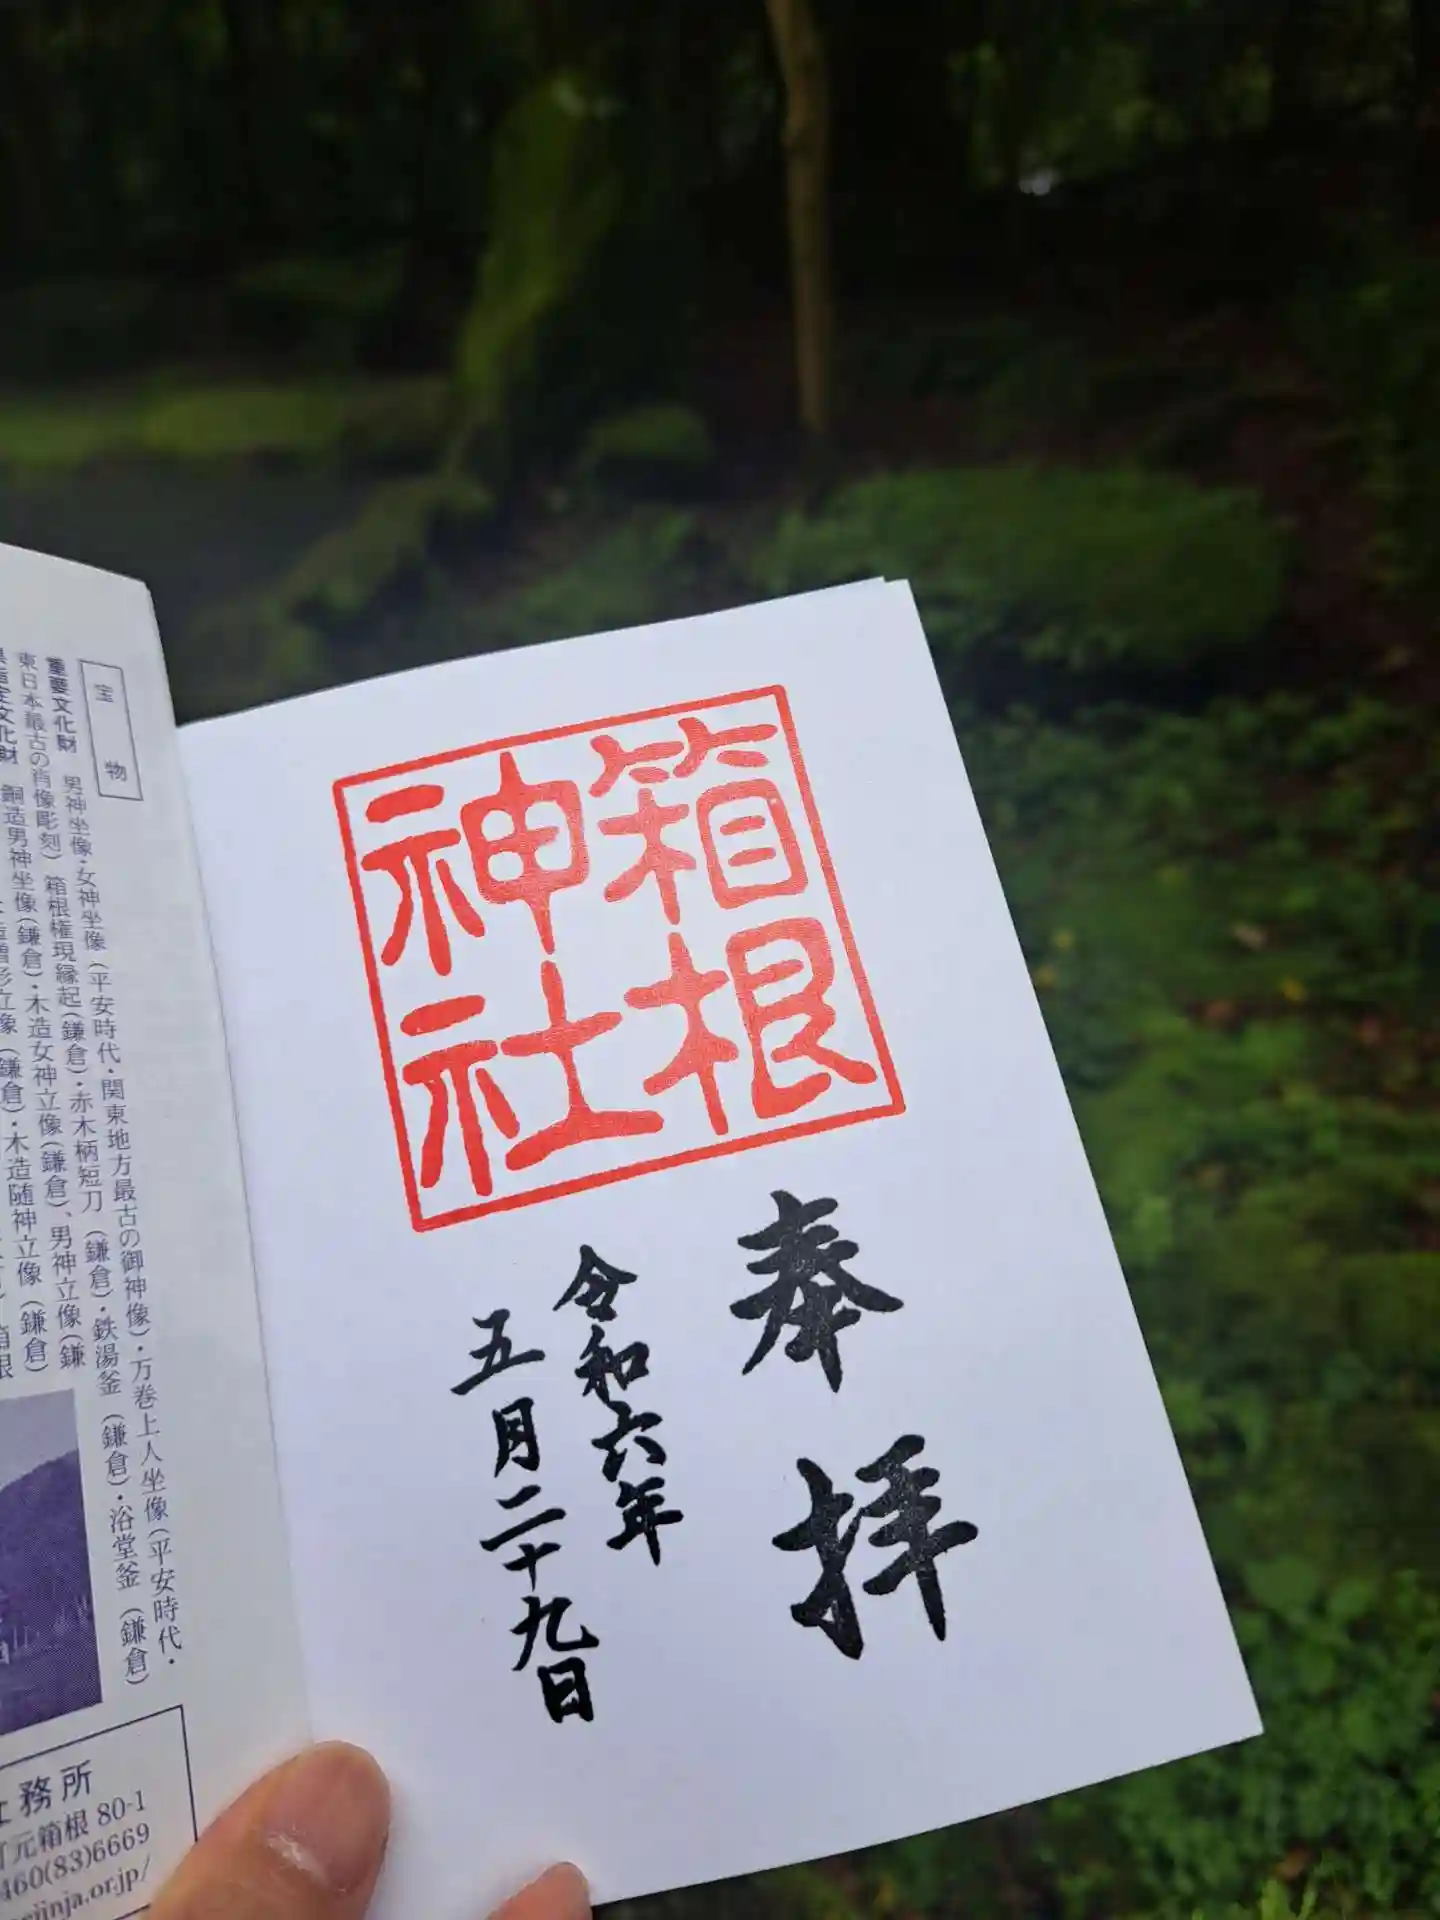 箱根
神社
奉拝
令和六年
五月二十九日
宝物
重要文化財 男神坐像・女神坐像（平安時代・関東地方最古の御神像）・万巻上人坐像（平安時代・
東日本最古の肖像彫刻） 箱根権現縁起（鎌倉）・赤木柄短刀（鎌倉）・鉄湯釜（鎌倉）・浴堂釜（鎌倉）
県指定文化財 銅造男神坐像（鎌倉）・木造女神立像（鎌倉）、男神立像（鎌
立像（鎌倉）・木造随神立像（鎌倉）
箱根
務所
元箱根 80-1
460(83)6669
jinja.or.jp/